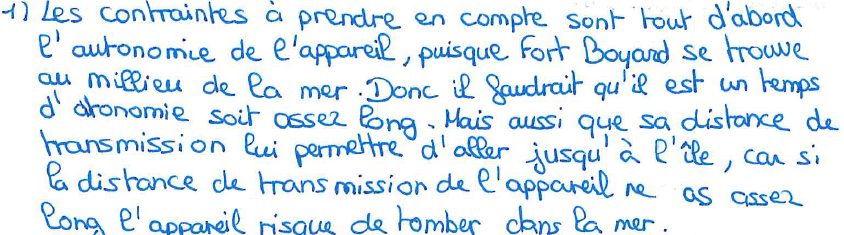 1) Les contraintes à prendre en compte sont tout d'abord
l'autonomie de l'appareil, puisque Fort Boyard se trouve
au millieu de la mer. Donc il faudrait qu'il est un temps
d'atonomie soit assez long. Mais aussi que sa distance de
transmission lui permettre d'aller jusqu'à l'île, car si
la distance de transmission de l'appareil ne as assez
long l'appareil risque de tomber dans la mer.